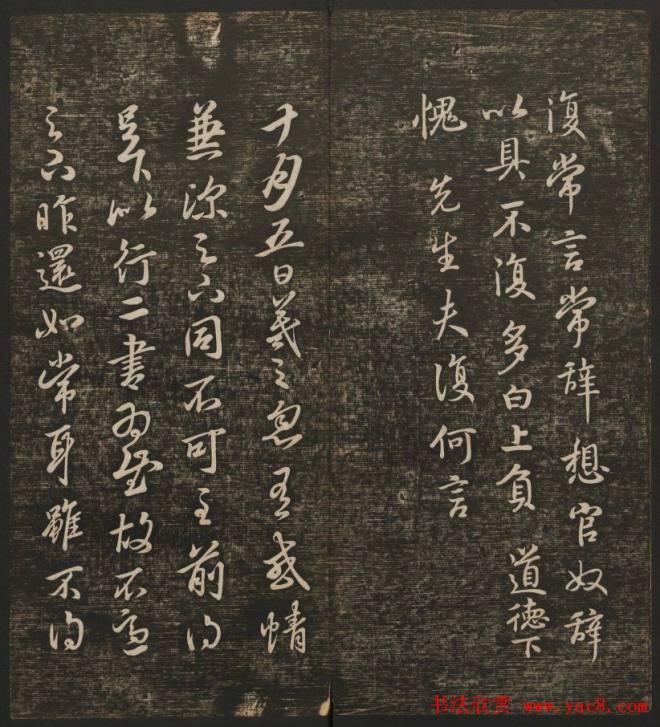 復常言常辞想官奴辞
以具不復多白上負 道德下
愧 先生夫復何言
十月五日羲之忽 感情
兼深足下同不可 前得
下以行二書 故不
足下昨還如常耳雖不得
书法欣赏 www.yac8.com